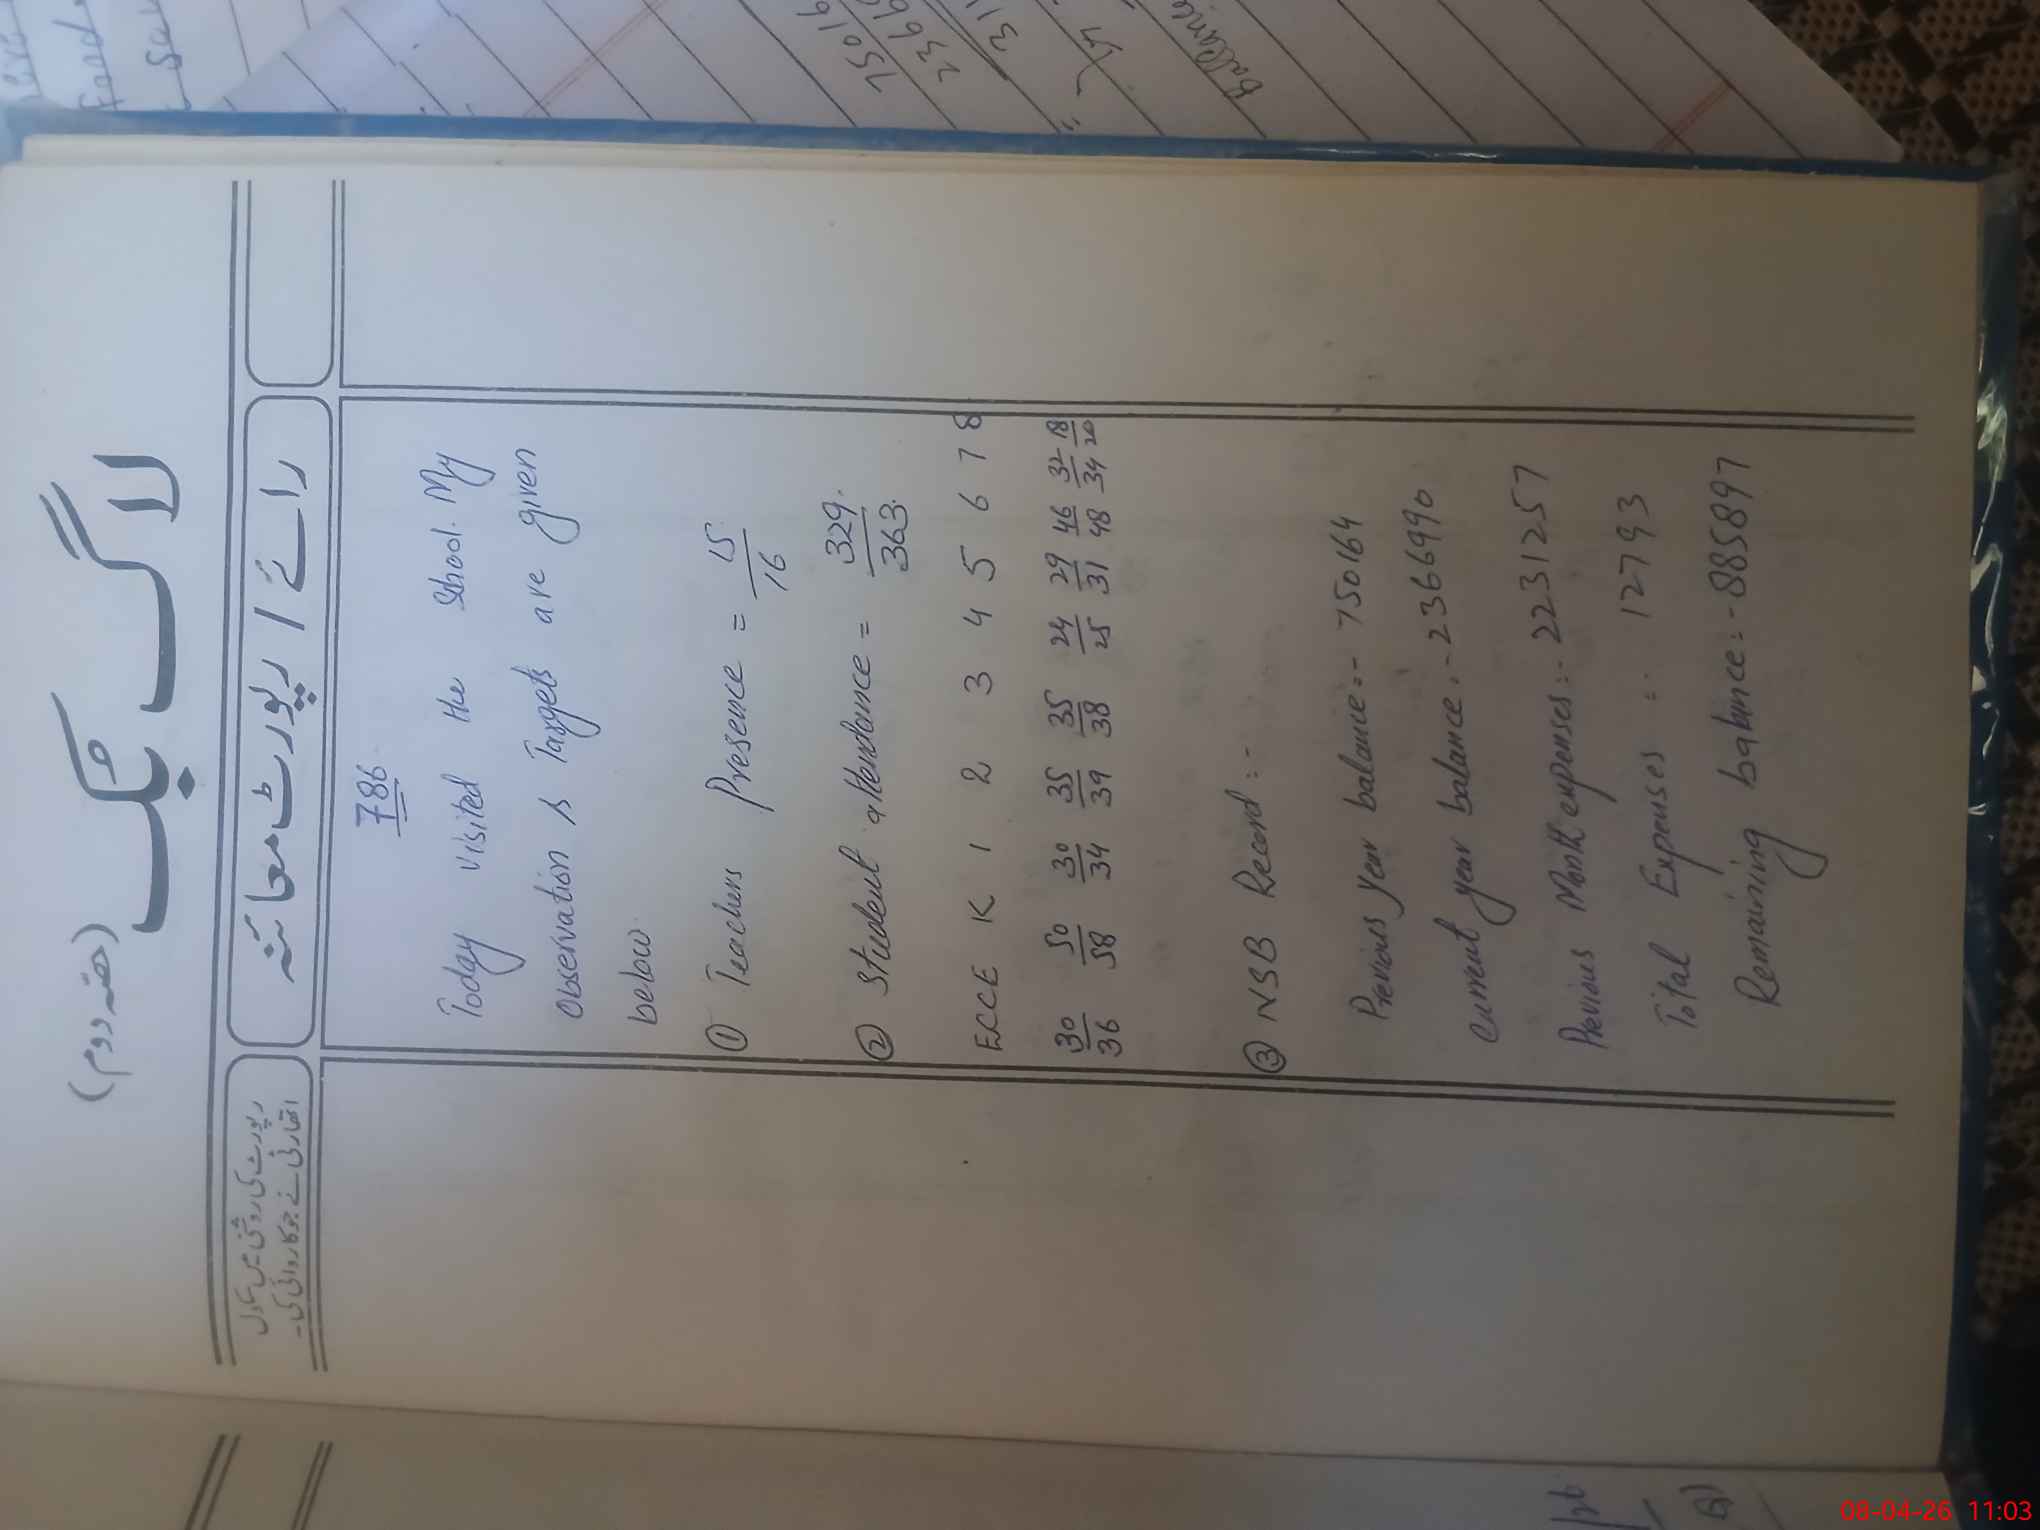 (حصّہ دوم)
لاگ بُک
رپورٹ کی روشنی میں مدرسہ
اتھارٹی نے جو کاروائی کی۔
رائے / رپورٹ معائنہ
786
Today visited the school. My
observation is Targets are given
below
① Teachers Presence = 15/16
② Student attendance = 329/363
ECCE K 1 2 3 4 5 6 7 8
30/36 50/58 30/34 35/39 35/38 24/25 29/31 46/48 32/34 18/20
③ NSB Record:-
Previous year balance:- 750164
current year balance:- 2366990
Previous Month expenses:- 2231257
Total Expenses =. 12793
Remaining balance:- 885897
Ballance
08-04-26 11:03